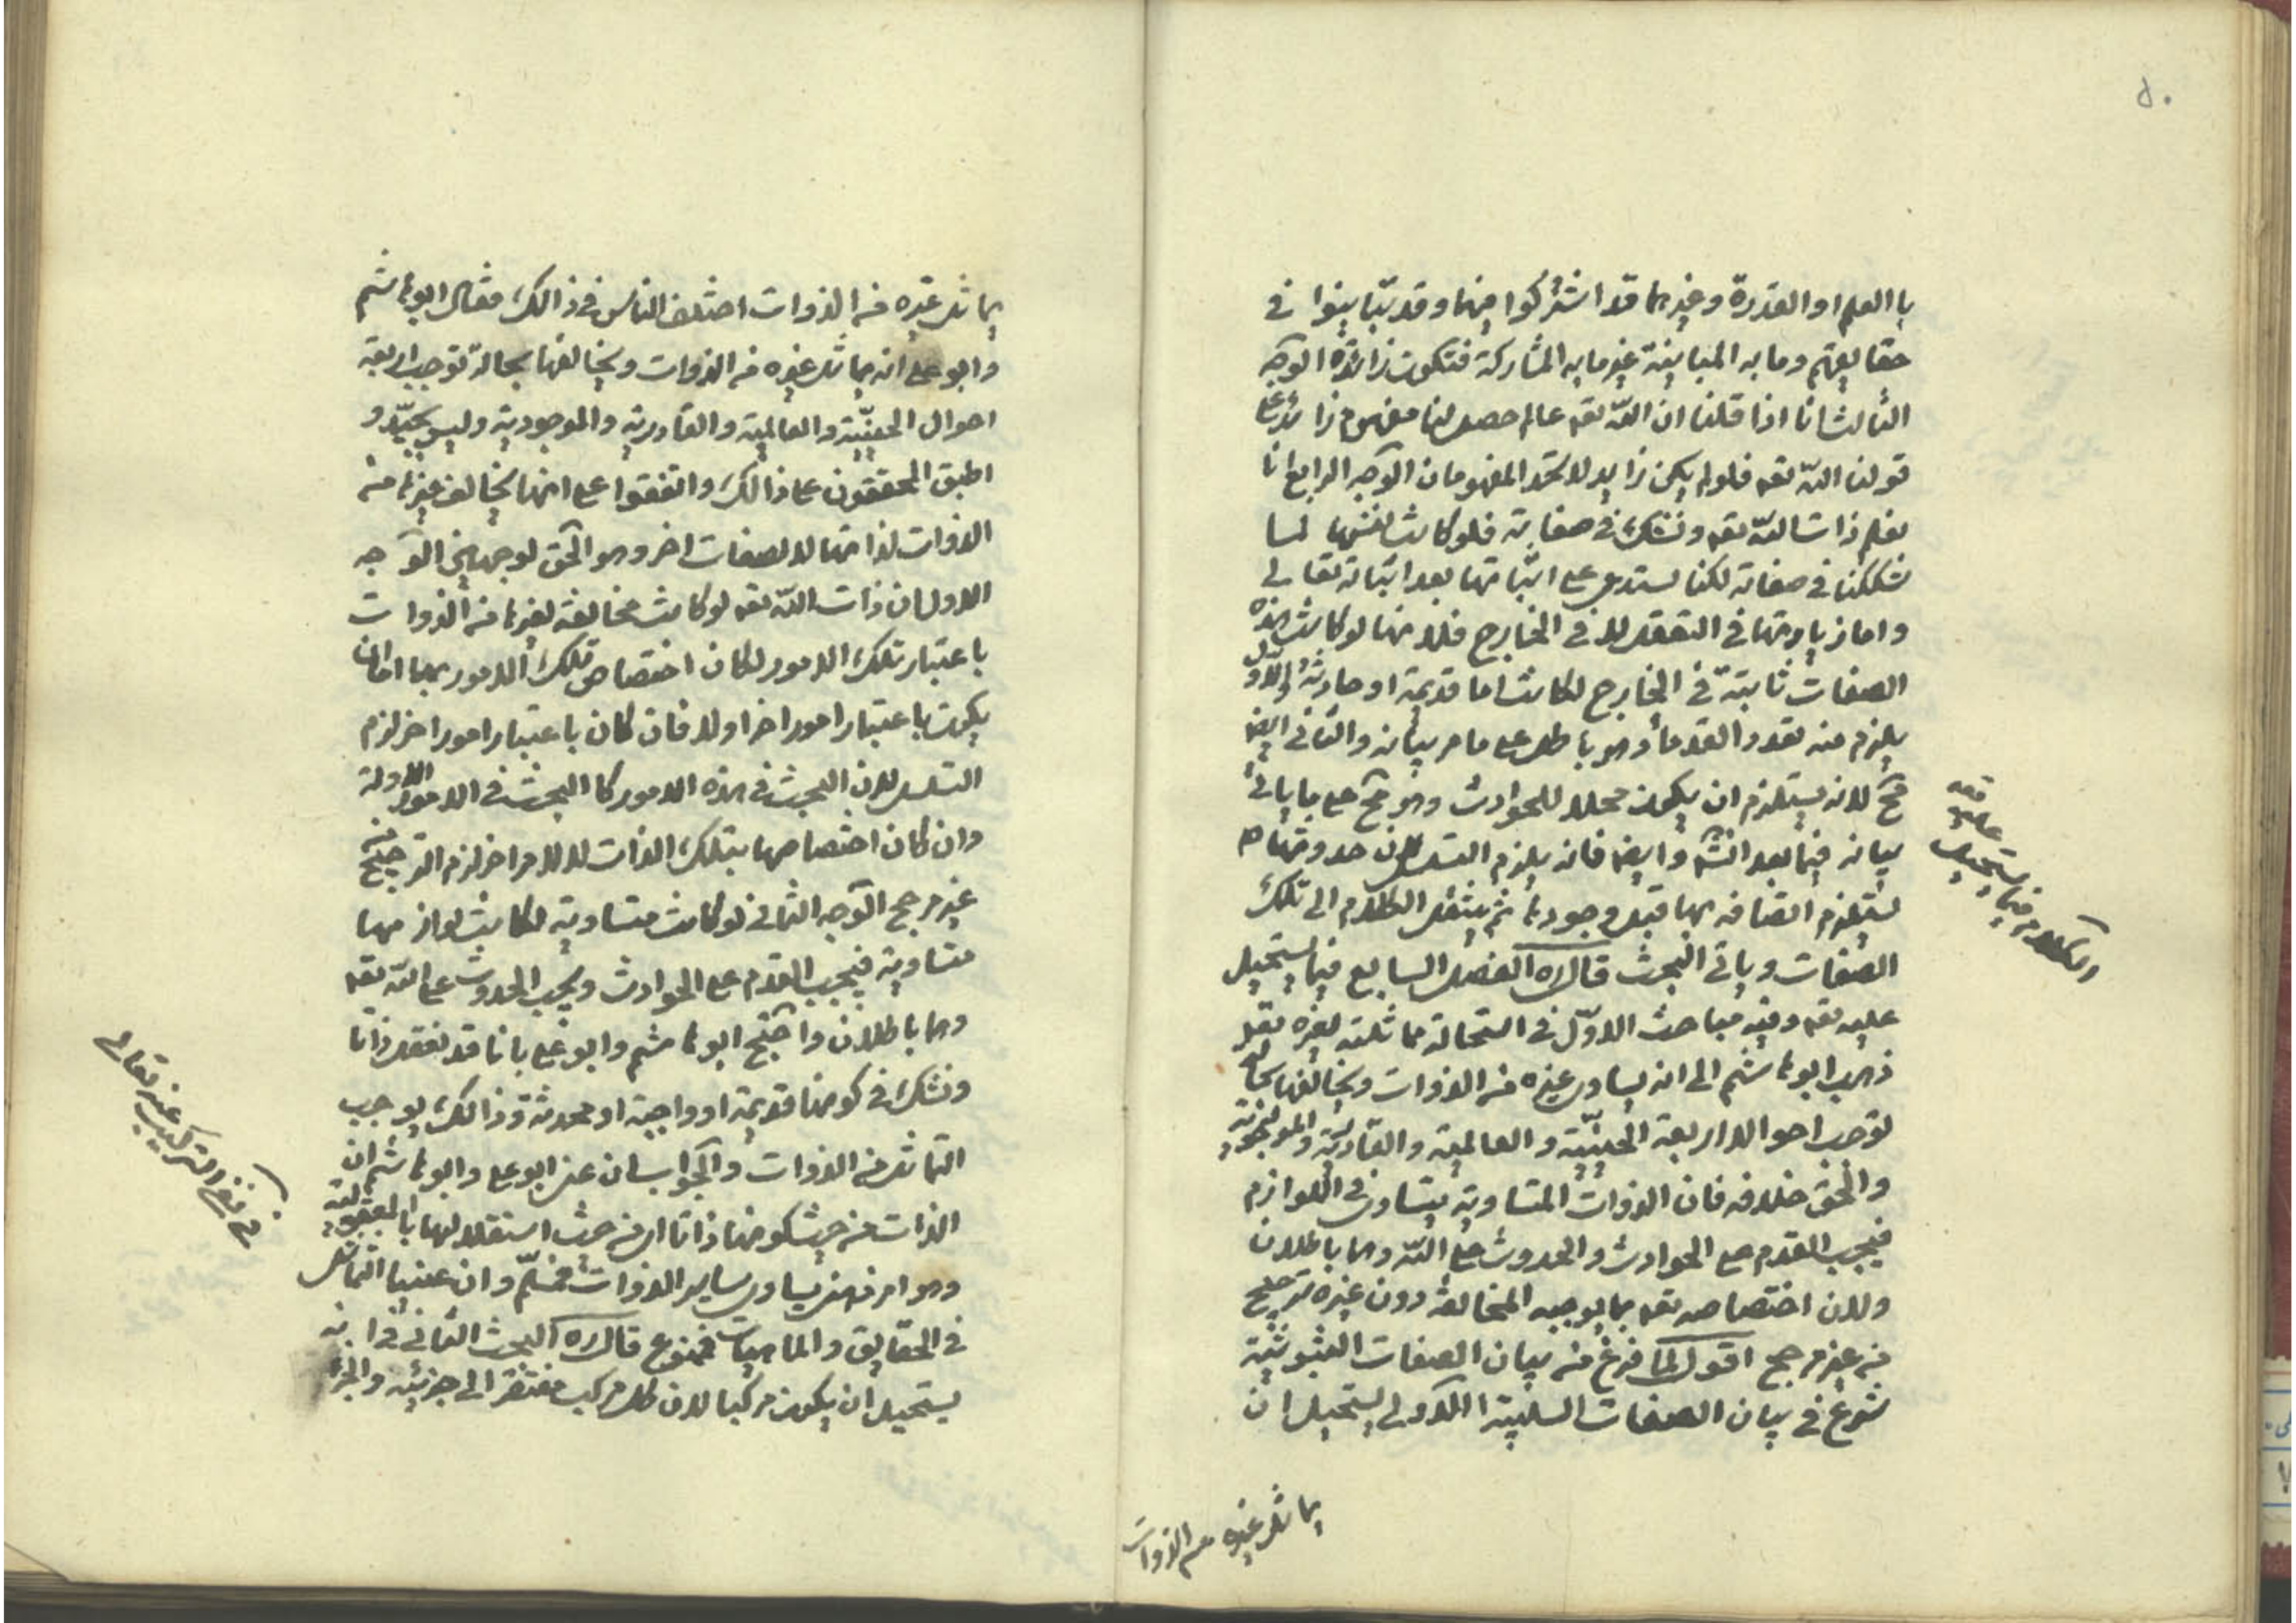 ٥٠
با العلم او القدرة وغيرهما قد اشتركوا فيهما وقد تباينوا في
حقايقهم وما به المباينة غير ما به المشاركة فتكون زائدة الوجه
الثالث انا اذا قلنا ان الله تعه عالم حصل لنا مفهوم زائد على
قولنا الله تعه فلو لم يكن زايد لاتحد المفهومان الوجه الرابع انا
نعلم ذات الله تعه ونشك في صفاته فلو كانت نفسها لما
شككنا في صفاته لكنا نستدل على اثباتها بعد اثباته تعالى
واما زيادتها في التعقل لا في الخارج فلانها لو كانت هذه
الصفات ثابتة في الخارج لكانت اما قديمة او حادثة والاول
يلزم منه تعدد القدماء وهو باطل على ما مر بيانه والثاني ايضا
مح لانه يستلزم ان يكون محلا للحوادث وهو مح على ما ياتي
بيانه فيما بعد انشه وايضا فانه يلزم التسلسل لان حدوثها
يستلزم اتصافه بها قبل وجودها ثم ينتقل الكلام الى تلك
الصفات وياتي البحث قال ره الفصل السابع فيما يستحيل
عليه تعه وفيه مباحث الاول في استحالة مماثلته لغيره تعه
ذهب ابو هاشم الى انه يساوي غيره من الذوات ويخالفها بحالة
توجب احوالا اربعة الحيية والعالمية والقادرية والموجودية
والحق خلافه فان الذوات المتساوية يتساوى في اللوازم
فيجب القدم على الحوادث والحدوث على الله وهما باطلان
ولان اختصاصه تعه بما يوجبه المخالفة دون غيره ترجيح
من غير مرجح اقول لما فرغ من بيان الصفات الثبوتية
شرع في بيان الصفات السلبية الاولى يستحيل ان
يماثل غيره من الذوات
والكلام فيما يستحيل
عليه تعه
يماثل غيره من الذوات اختلف الناس في ذالك فقال ابو هاشم
وابو على انه يماثل غيره من الذوات ويخالفها بحالة توجب اربعة
احوال الحيية والعالمية والقادرية والموجودية وليس بجيد و
اطبق المحققون على ذالك واتفقوا على انها يخالف غيرها من
الذوات لذاتها لا لصفات اخر وهو الحق لوجهين الوجه
الاول ان ذات الله تعه لو كانت مخالفة لغيرها من الذوات
باعتبار تلك الامور لكان اختصاص تلك الامور بها اما ان
يكون باعتبار امور اخر او لا فان كان باعتبار امور اخر لزم
التسلسل لان البحث في هذه الامور كا البحث في الامور الاولة
وان كان اختصاصها بتلك الذات لا لامر اخر لزم الترجيح من
غير مرجح الوجه الثاني لو كانت متساوية لكانت لوازمها
متساوية فيجب القدم على الحوادث ويجب الحدوث على الله تعه
وهما باطلان واحتج ابو هاشم وابو على بانا قد نعقل ذاتا
ونشك في كونها قديمة او واجبة او محدثة وذالك يوجب
التماثل من الذوات والجواب ان عنى ابو على وابو هاشم ان
الذات من حيث كونها ذاتا اي من حيث استقلالها با المعقولية
وهو امر ذهني يساوي ساير الذوات فمسلم وان عنيا التماثل
في الحقايق والماهيات فممنوع قال ره البحث الثاني في انه
يستحيل ان يكون مركبا لان كل مركب مفتقر الى جزئيه والجزء
في نفي التركيب عنه تعالى